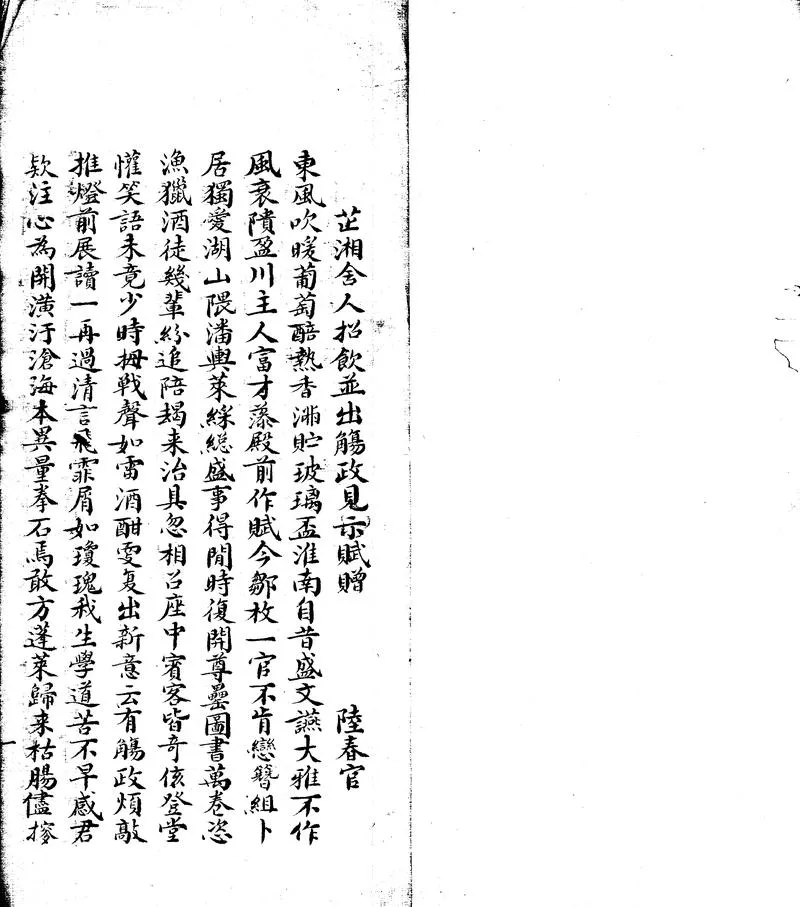 芷湘舍人招飲並出觴政見示賦贈 陸春官
東風吹暖葡萄醅熱香滿貯玻璃盃淮南自昔盛文讌大雅不作
風衰隤盈川主人富才藻殿前作賦今鄒枚一官不肯戀簪組卜
居獨愛湖山隈潘輿萊綵總盛事得閒時復開尊罍圖書萬卷恣
漁獵酒徒幾輩紛追陪朅来治具忽相召座中賓客皆奇侅登堂
懽笑語未竟少時拇戰聲如雷酒酣雯复出新意云有觴政煩敲
推燈前展讀一再過清言飛霏屑如瓊瑰我生學道苦不早感君
欵注心為開潢汙滄海本異量拳石焉敢方蓬萊歸来枯腸儘搜